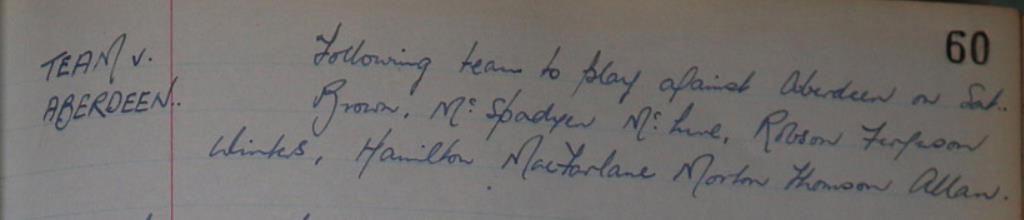 60
TEAM v.
ABERDEEN.
Following team to play against Aberdeen on Sat.
Brown, Mc Spadyen Mc Lure, Robson Ferguson
Winters, Hamilton MacFarlane Morton Thomson Allan.